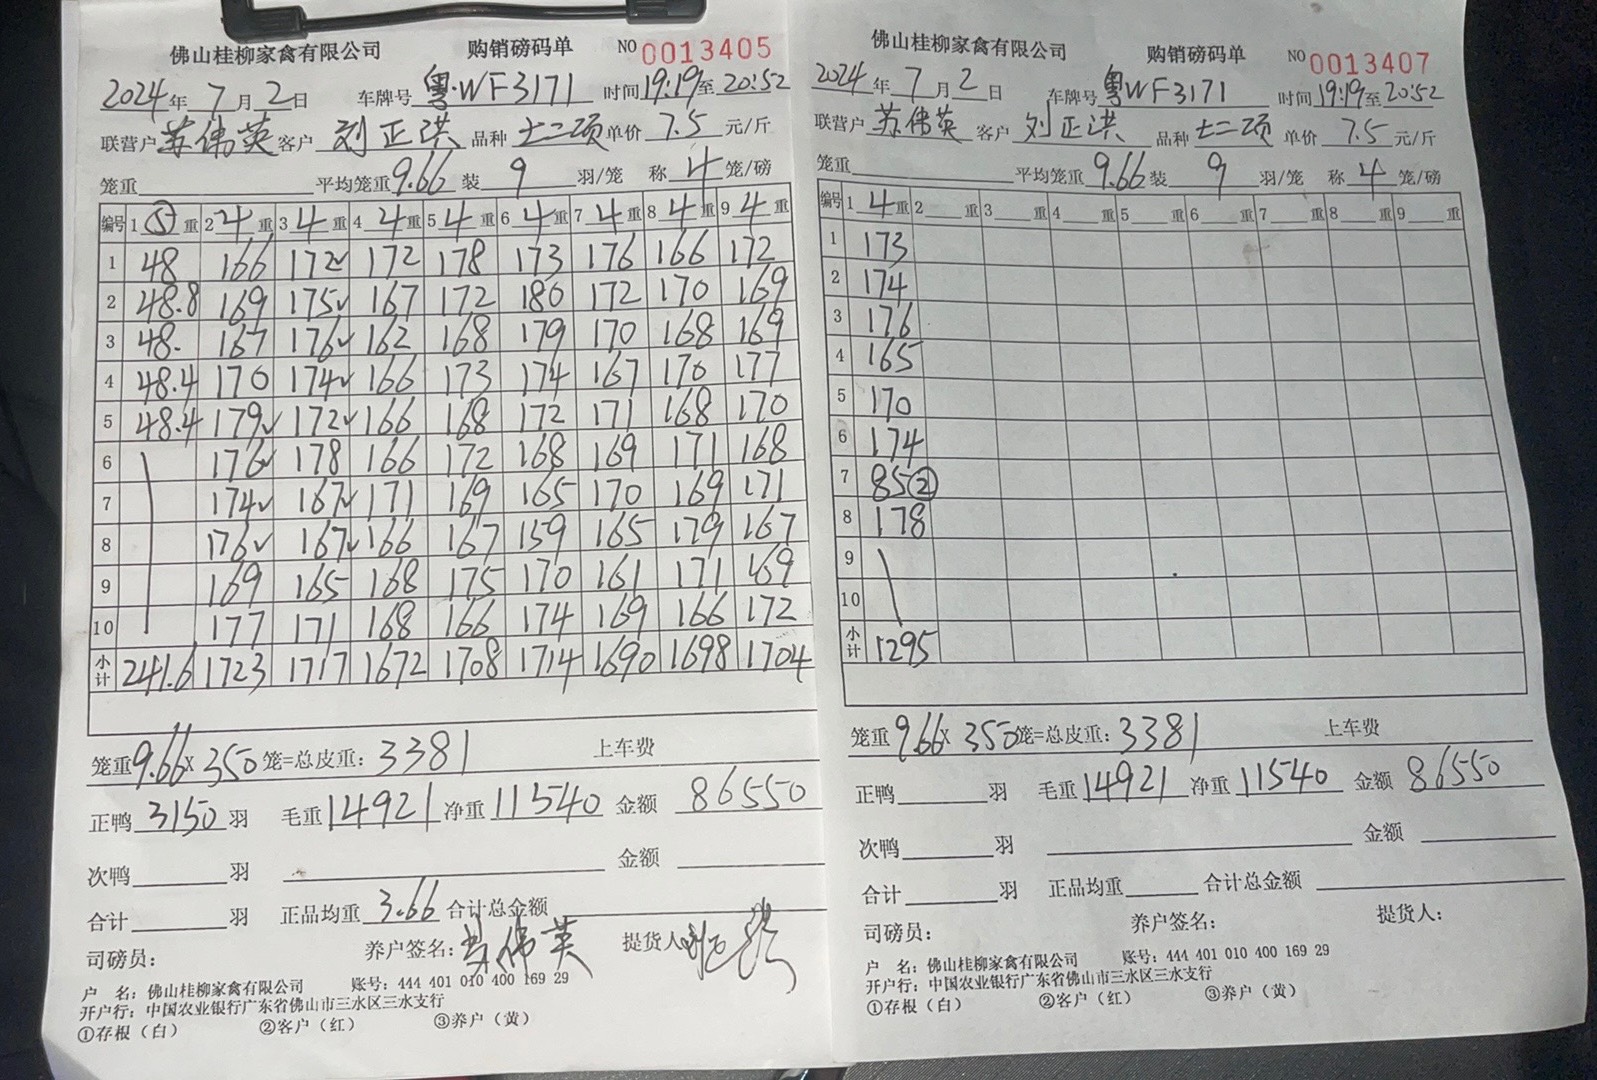 佛山桂柳家禽有限公司 购销磅码单 NO 0013405
2024年 7月 2日 车牌号 粤·WF3171 时间 19:19至 20:52
联营户 苏伟英 客户 刘正洪 品种 七二项 单价 7.5 元/斤
笼重 平均笼重 9.66 装 9 羽/笼 称 4 笼/磅
编号 1 ⑤ 重 2 4 重 3 4 重 4 4 重 5 4 重 6 4 重 7 4 重 8 4 重 9 4 重
1 48 166 172✓ 172 178 173 176 166 172
2 48.8 169 175✓ 167 172 180 172 170 169
3 48. 167 176✓ 162 168 179 170 168 169
4 48.4 170 174✓ 166 173 174 167 170 177
5 48.4 179✓ 172✓ 166 168 172 171 168 170
6 176✓ 178 166 172 168 169 171 168
7 174✓ 167✓ 171 169 165 170 169 171
8 176✓ 167✓ 166 167 159 165 179 167
9 169 165 168 175 170 161 171 169
10 177 171 168 166 174 169 166 172
小计 241.6 1723 1717 1672 1708 1714 1690 1698 1704
笼重 9.66 × 350 笼=总皮重: 3381 上车费
正鸭 3150 羽 毛重 14921 净重 11540 金额 86550
次鸭 羽 金额
合计 羽 正品均重 3.66 合计总金额
司磅员: 养户签名: 苏伟英 提货人
户 名: 佛山桂柳家禽有限公司 账号: 444 401 010 400 169 29
开户行: 中国农业银行广东省佛山市三水区三水支行
①存根（白） ②客户（红） ③养户（黄）
佛山桂柳家禽有限公司 购销磅码单 NO 0013407
2024年 7月 2日 车牌号 粤WF3171 时间 19:19至 20:52
联营户 苏伟英 客户 刘正洪 品种 七二项 单价 7.5 元/斤
笼重 平均笼重 9.66 装 9 羽/笼 称 4 笼/磅
编号 1 4 重 2 重 3 重 4 重 5 重 6 重 7 重 8 重 9 重
1 173
2 174
3 176
4 165
5 170
6 174
7 85②
8 178
9
10
小计 1295
笼重 9.66 × 350 笼=总皮重: 3381 上车费
正鸭 羽 毛重 14921 净重 11540 金额 86550
次鸭 羽 金额
合计 羽 正品均重 合计总金额
司磅员: 养户签名: 提货人:
户 名: 佛山桂柳家禽有限公司 账号: 444 401 010 400 169 29
开户行: 中国农业银行广东省佛山市三水区三水支行
①存根（白） ②客户（红） ③养户（黄）